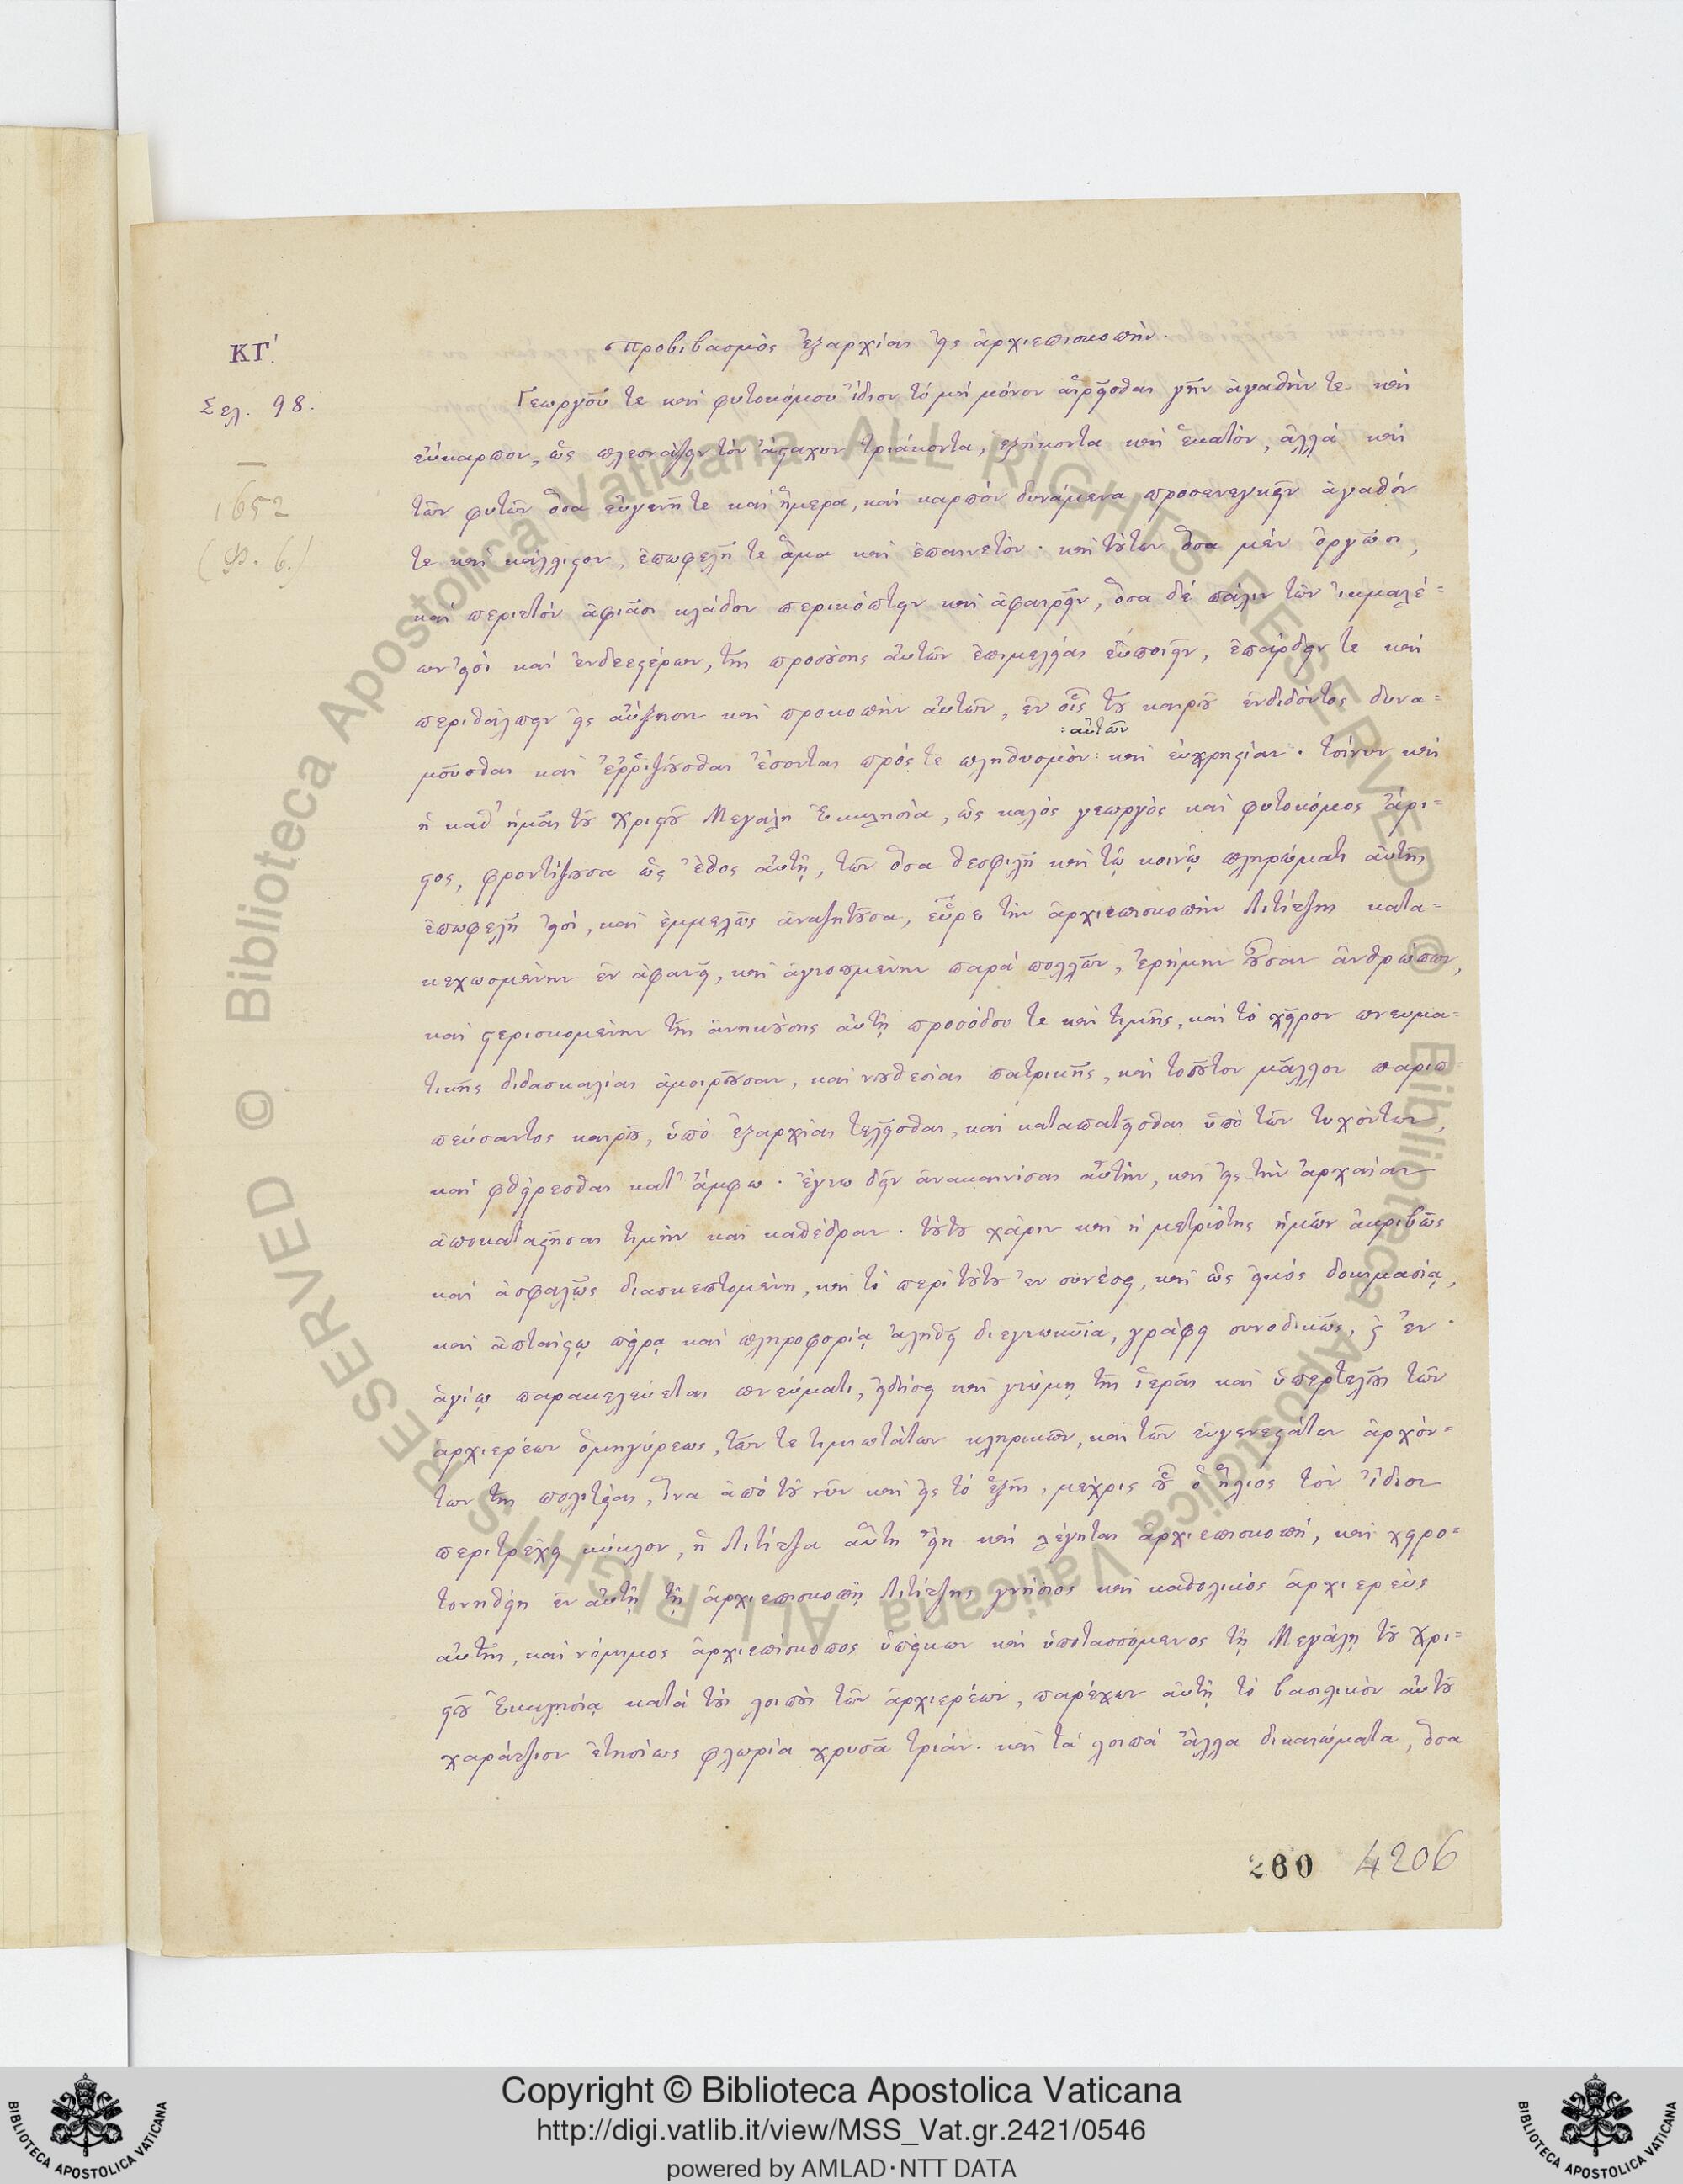 ΚΓ΄.
Προβιβασμὸς ἐξαρχίας εἰς ἀρχιεπισκοπήν.
Σελ. 98.
Γεωργοῦ τε καὶ φυτοκόμου ἴδιον τό μή μόνον αἱρεῖσθαι γῆν ἀγαθήν τε καὶ
εὔκαρπον, ὡς πλεονάζειν τὸν ἄσταχυν τριάκοντα, ἑξήκοντα καὶ ἑκατὸν, ἀλλά καὶ
1652
(Φ. 6.)
τῶν φυτῶν ὅσα εὐγενῆ τε καὶ ἥμερα, καὶ καρπὸν δυνάμενα προσενεγκεῖν ἀγαθόν
τε καὶ κάλλιστον, ἐπωφελῆ τε ἅμα καὶ ἐπαινετὸν· καὶ τούτων ὅσα μέν ὀργῶσι,
καὶ περιττόν ἀφιᾶσι κλάδον περικόπτειν καὶ ἀφαιρεῖν, ὅσα δέ πάλιν τῶν ἰκμαλέ=
ων εἰσὶ καὶ ἐνδεεστέρων, τῆς προσούσης αὐτῶν ἐπιμελείας εὐποιεῖν, ἐπάρδειν τε καὶ
περιθάλπειν εἰς αὔξησιν καὶ προκοπὴν αὐτῶν, ἐν οἷς τοῦ καιροῦ ἐνδιδόντος δυνα=
:αὐτῶν
μοῦσθαι καὶ ἐῤῥιζοῦσθαι ἔσονται πρός τε πληθυσμὸν: καὶ εὐχρηστίαν. τοίνυν καὶ
ἡ καθ' ἡμᾶς τοῦ Χριστοῦ Μεγάλη Ἐκκλησία, ὡς καλὸς γεωργὸς καὶ φυτοκόμος ἄρι=
στος, φροντίζουσα ὡς ἔθος αὐτῇ, τῶν ὅσα θεοφιλῆ καὶ τῷ κοινῷ πληρώματι αὐτῆς
ἐπωφελῆ εἰσί, καὶ ἐμμελῶς ἀναζητοῦσα, εὗρε τὴν ἀρχιεπισκοπὴν Λιτίτζης κατα=
κεχωσμένην ἐν ἀφανεῖ, καὶ ἀγνοουμένην παρὰ πολλῶν, ἐρήμην οὖσαν ἀνθρώπων,
καὶ στερισκομένην τῆς ἀνηκούσης αὐτῇ προσόδου τε καὶ τιμῆς, καὶ τὸ χεῖρον πνευμα=
τικῆς διδασκαλίας ἀμοιροῦσαν, καὶ νουθεσίας πατρικῆς, καὶ τοσοῦτον μᾶλλον παριπ=
πεύσαντος καιροῦ, ὑπὸ ἐξαρχίας τελεῖσθαι, καὶ καταπατεῖσθαι ὑπὸ τῶν τυχόντων,
καὶ φθείρεσθαι κατ' ἄμφω. ἔγνω δεῖν ἀνακαινίσαι αὐτὴν, καὶ εἰς τὴν ἀρχαίαν
ἀποκαταστῆσαι τιμὴν καὶ καθέδραν. τούτου χάριν καὶ ἡ μετριότης ἡμῶν ἀκριβῶς
καὶ ἀσφαλῶς διασκεπτομένη, καὶ τὸ περὶ τούτου ἐν συνέσει, καὶ ὡς εἰκός δοκιμασίᾳ,
καὶ ἀπταίστῳ πείρᾳ καὶ πληροφορίᾳ ἀληθεῖ διεγνωκυῖα, γράφει συνοδικῶς, καὶ ἐν
ἁγίῳ παρακελεύεται πνεύματι, εἰδήσει καὶ γνώμῃ τῆς ἱερᾶς καὶ ὑπερτελοῦς τῶν
ἀρχιερέων ὁμηγύρεως, τῶν τε τιμιωτάτων κληρικῶν, καὶ τῶν εὐγενεστάτων ἀρχόν=
των τῆς πολιτείας, ἵνα ἀπὸ τοῦ νῦν καὶ εἰς τὸ ἑξῆς, μέχρις οὗ ὁ ἥλιος τὸν ἴδιον
περιτρέχει κύκλον, ἡ Λιτίτζα αὕτη εἴη καὶ λέγηται ἀρχιεπισκοπή, καὶ χειρο=
τονηθείη ἐν αὐτῇ τῇ ἀρχιεπισκοπῇ Λιτίτζης γνήσιος καὶ καθολικὸς ἀρχιερεὺς
αὐτῆς, καὶ νόμιμος ἀρχιεπίσκοπος ὑπείκων καὶ ὑποτασσόμενος τῇ Μεγάλῃ τοῦ Χρι=
στοῦ Ἐκκλησίᾳ κατά τοὺς λοιποὺς τῶν ἀρχιερέων, παρέχων αὐτῇ τὸ βασιλικὸν αὐτοῦ
χαράτζιον ἐτησίως φλωρία χρυσᾶ τριάν. καὶ τά λοιπά ἄλλα δικαιώματα, ὅσα
260 4206
Copyright © Biblioteca Apostolica Vaticana
http://digi.vatlib.it/view/MSS_Vat.gr.2421/0546
powered by AMLAD·NTT DATA
BIBLIOTECA APOSTOLICA VATICANA
BIBLIOTECA APOSTOLICA VATICANA
© Biblioteca Apostolica Vaticana ALL RIGHTS RESERVED © Biblioteca Apostolica Vaticana ALL RIGHTS RESERVED